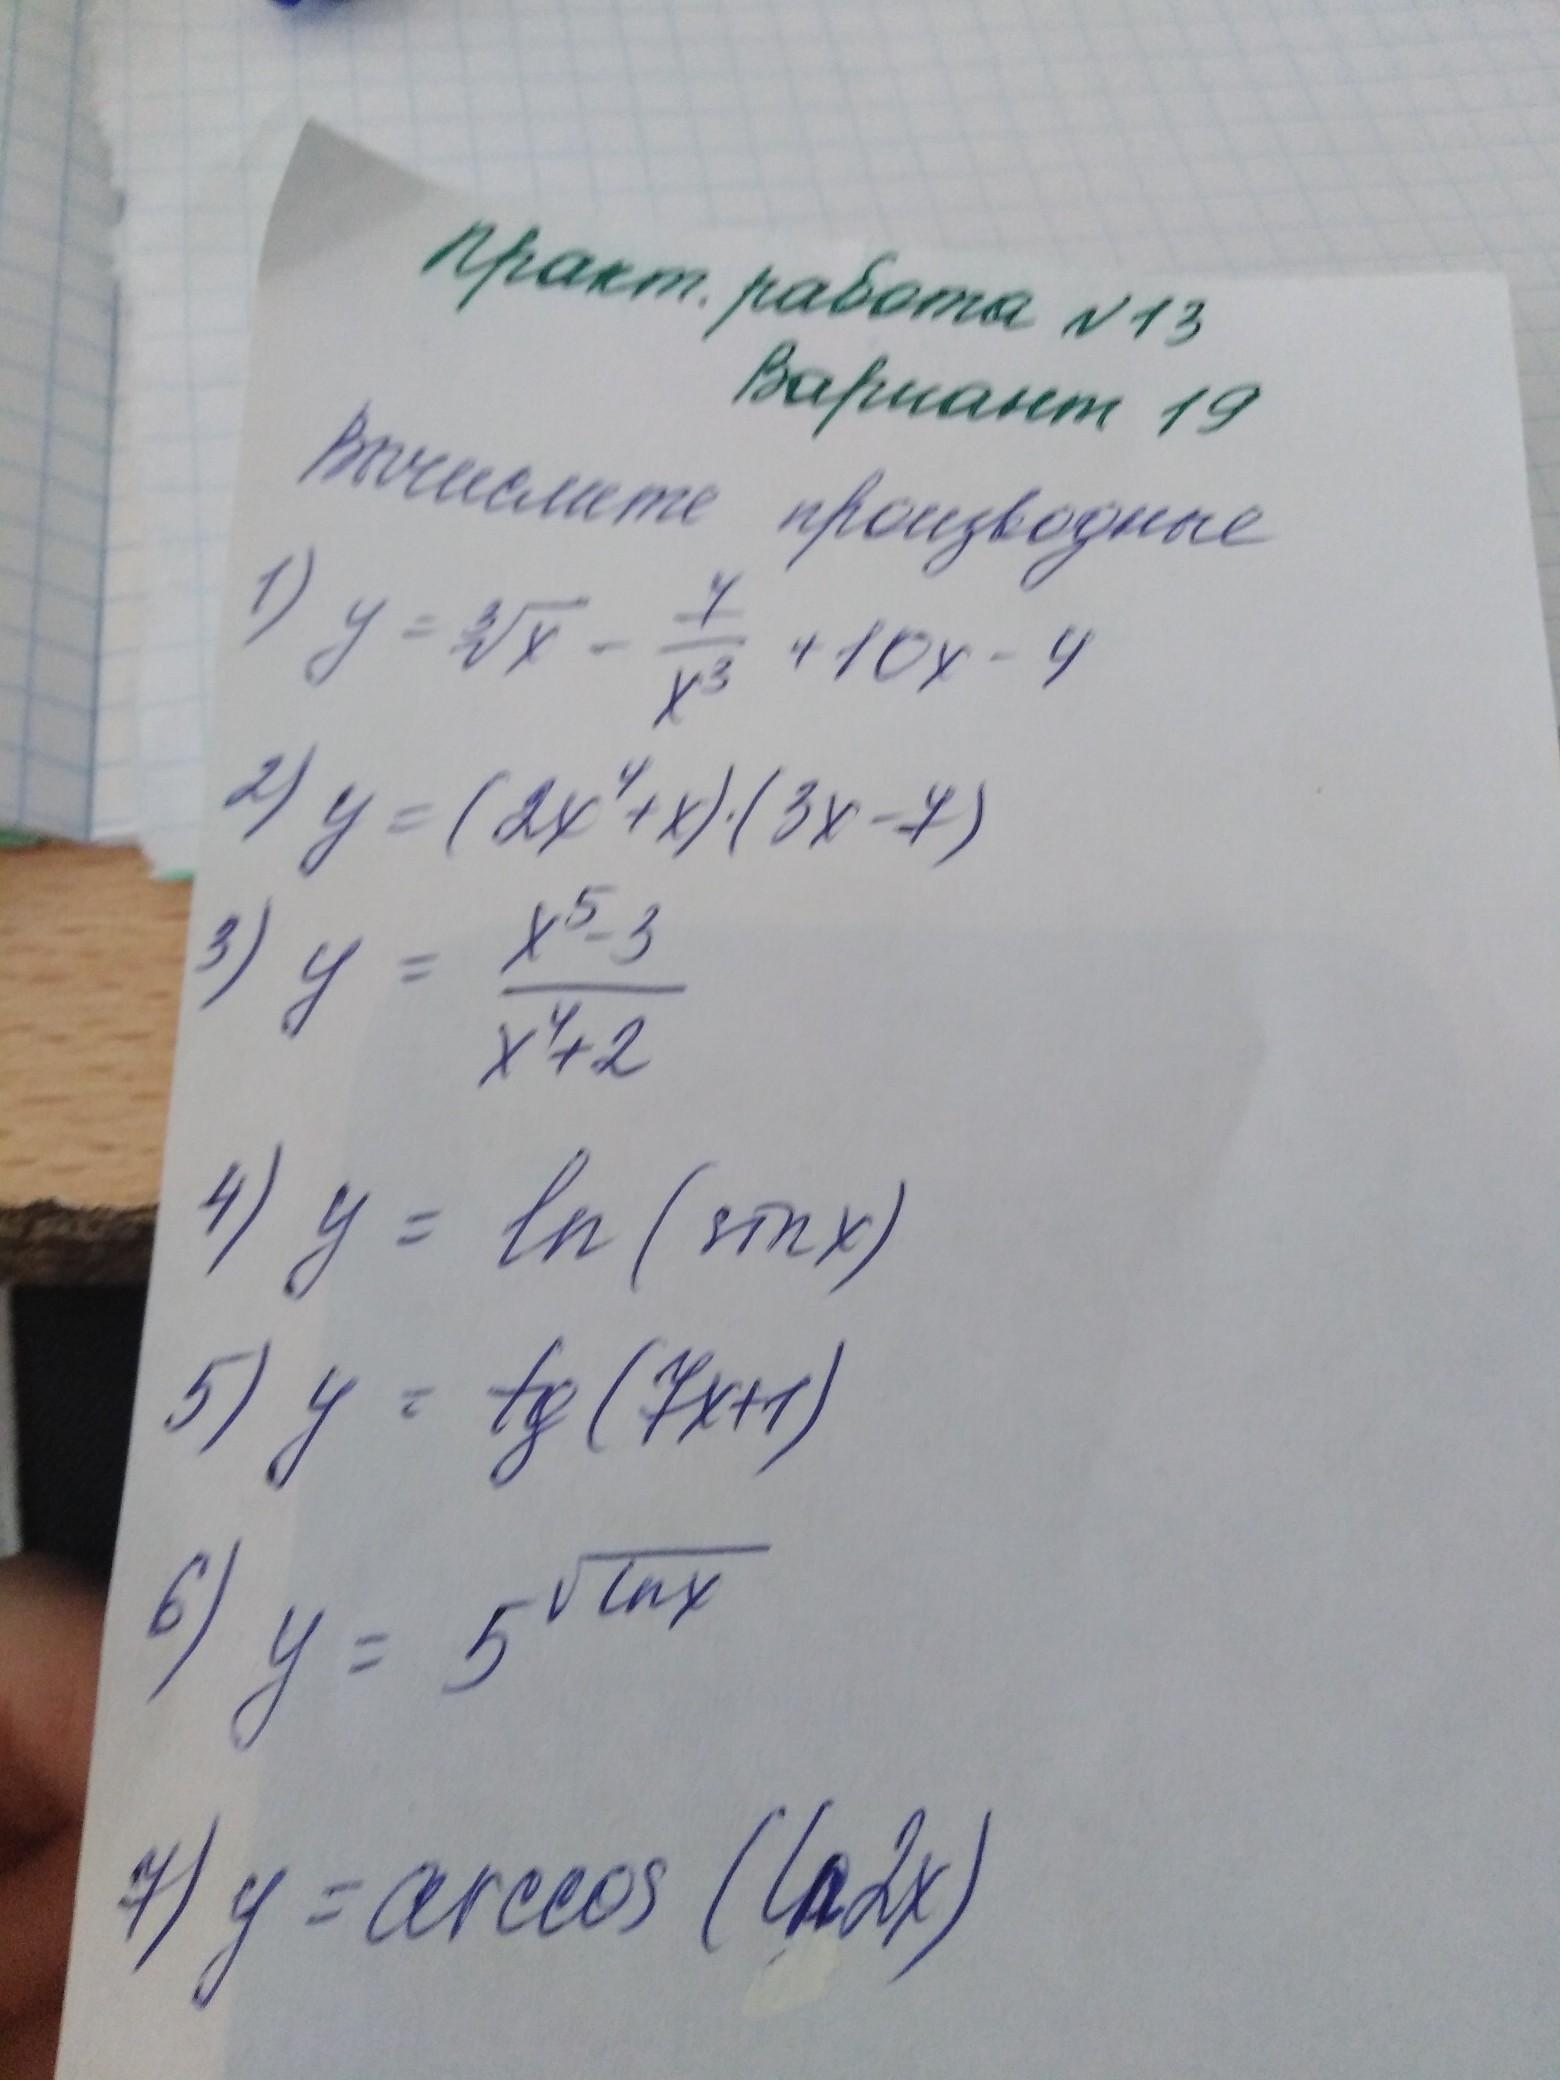 Практ. работа №13
Вариант 19
Вычислите производные
1) y = ∛x - 7/x³ + 10x - 4
2) y = (2x⁴+x)·(3x-7)
3) y = (x⁵-3)/(x⁴+2)
4) y = ln(sinx)
5) y = tg(7x+1)
6) y = 5^√(lnx)
7) y = arccos(ln2x)